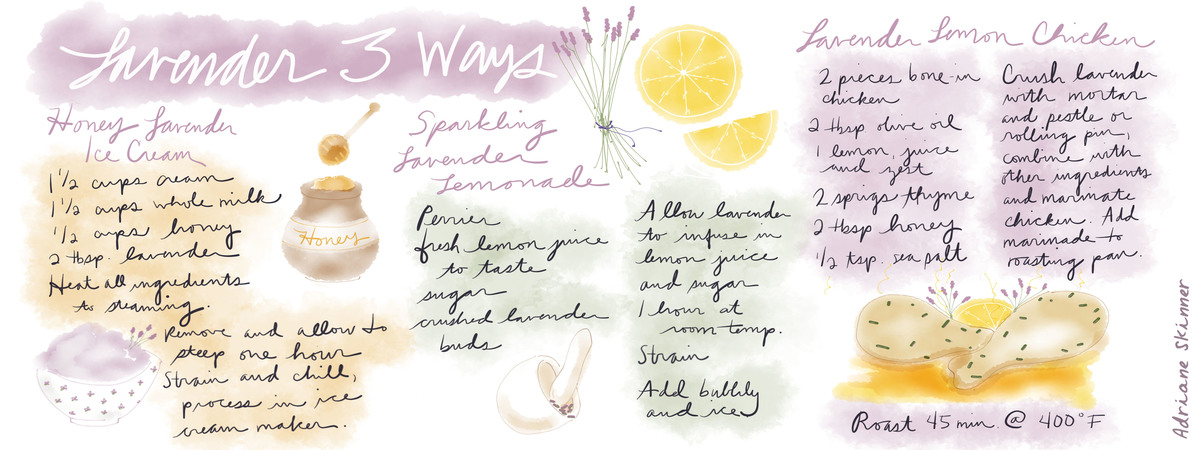 Lavender 3 Ways
Honey Lavender
Ice Cream
1 1/2 cups cream
1 1/2 cups whole milk
1/2 cups honey
2 tbsp. lavender
Heat all ingredients
to steaming.
Remove and allow to
steep one hour
Strain and chill,
process in ice
cream maker.
Honey
Sparkling
Lavender
Lemonade
Perrier
fresh lemon juice
to taste
sugar
crushed lavender
buds
Allow lavender
to infuse in
lemon juice
and sugar
1 hour at
room temp.
Strain
Add bubbly
and ice
Lavender Lemon Chicken
2 pieces bone-in
chicken
2 tbsp olive oil
1 lemon, juice
and zest
2 sprigs thyme
2 tbsp honey
1/2 tsp. sea salt
Crush lavender
with mortar
and pestle or
rolling pin,
combine with
other ingredients
and marinate
chicken. Add
marinade to
roasting pan.
Roast 45 min. @ 400°F
Adriane Skinner